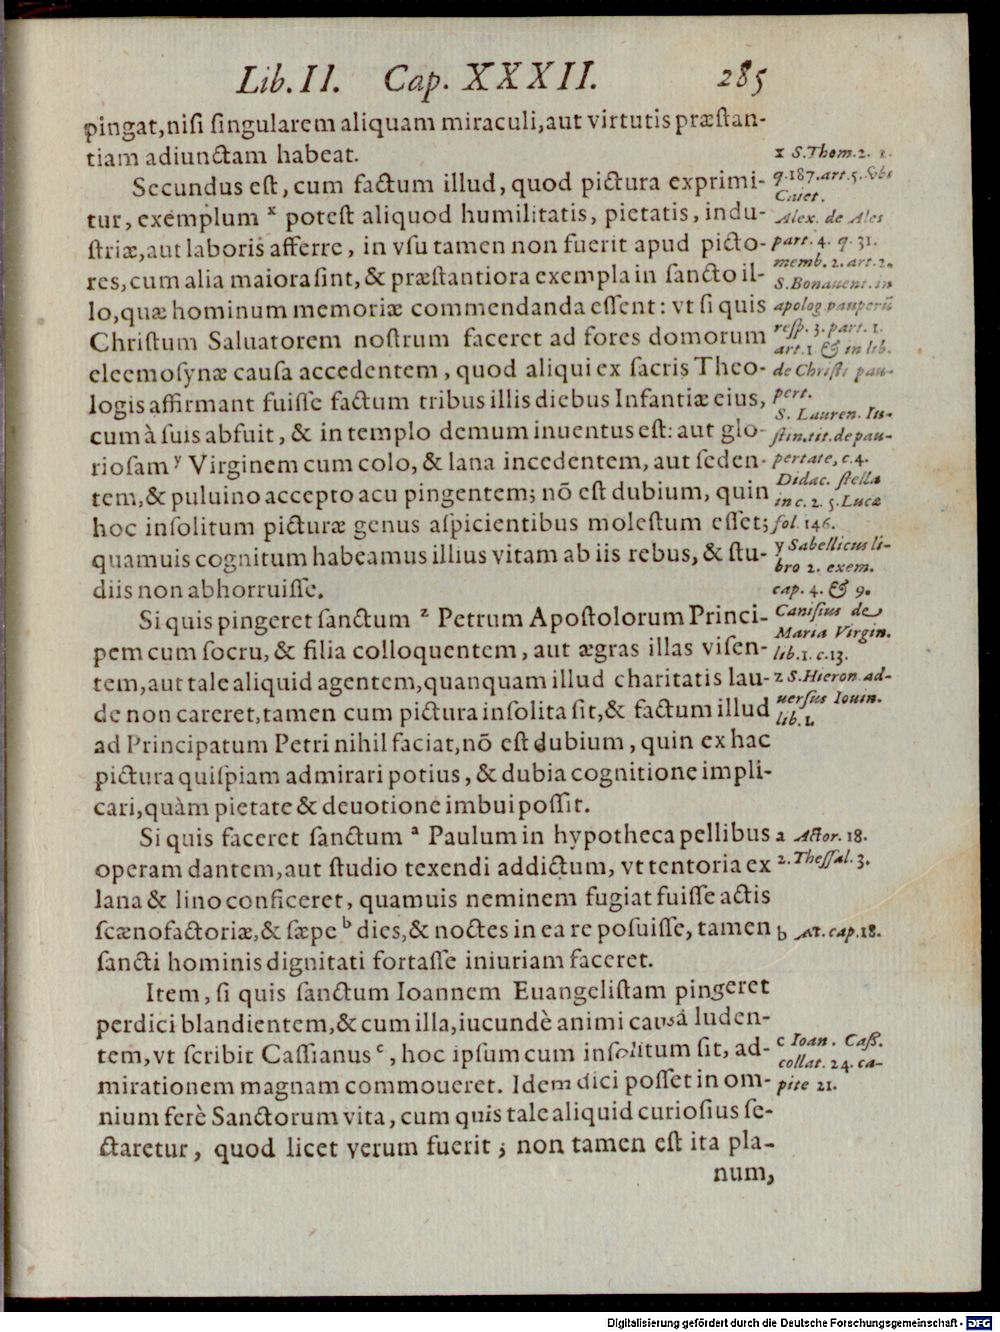 Lib. II. Cap. XXXII. 285
pingat, nisi singularem aliquam miraculi, aut virtutis præstan-
tiam adiunctam habeat.
Secundus est, cum factum illud, quod pictura exprimi-
tur, exemplum x potest aliquod humilitatis, pietatis, indu-
striæ, aut laboris afferre, in vsu tamen non fuerit apud picto-
res, cum alia maiora sint, & præstantiora exempla in sancto il-
lo, quæ hominum memoriæ commendanda essent: vt si quis
Christum Saluatorem nostrum faceret ad fores domorum
eleemosynæ causa accedentem, quod aliqui ex sacris Theo-
logis affirmant fuisse factum tribus illis diebus Infantiæ eius,
cum à suis abfuit, & in templo demum inuentus est: aut glo-
riosam y Virginem cum colo, & lana incedentem, aut seden-
tem, & puluino accepto acu pingentem; nõ est dubium, quin
hoc insolitum picturæ genus aspicientibus molestum esset;
quamuis cognitum habeamus illius vitam ab iis rebus, & stu-
diis non abhorruisse.
Si quis pingeret sanctum z Petrum Apostolorum Princi-
pem cum socru, & filia colloquentem, aut ægras illas visen-
tem, aut tale aliquid agentem, quanquam illud charitatis lau-
de non careret, tamen cum pictura insolita sit, & factum illud
ad Principatum Petri nihil faciat, nõ est dubium, quin ex hac
pictura quispiam admirari potius, & dubia cognitione impli-
cari, quàm pietate & deuotione imbui possit.
Si quis faceret sanctum a Paulum in hypotheca pellibus
operam dantem, aut studio texendi addictum, vt tentoria ex
lana & lino conficeret, quamuis neminem fugiat fuisse actis
scænofactoriæ, & sæpe b dies, & noctes in ea re posuisse, tamen
sancti hominis dignitati fortasse iniuriam faceret.
Item, si quis sanctum Ioannem Euangelistam pingeret
perdici blandientem, & cum illa, iucundè animi causá luden-
tem, vt scribit Cassianus c, hoc ipsum cum insolitum sit, ad-
mirationem magnam commoueret. Idem dici posset in om-
nium ferè Sanctorum vita, cum quis tale aliquid curiosius se-
ctaretur, quod licet verum fuerit; non tamen est ita pla-
num,
x S. Thom. 2. 2.
q. 187. art. 5. & ubi
Caiet.
Alex. de Ales
part. 4. q. 31.
memb. 2. art. 2.
S. Bonauent. in
apolog. pauperũ
resp. 3. part. 1.
art. 1 & in lib.
de Christi pau-
pert.
S. Lauren. Iu-
stin. tit. de pau-
pertate, c. 4.
Didac. stella
in c. 2. 5. Lucæ
fol 146.
y Sabellicus li-
bro 2. exem.
cap. 4. & 9.
Canisius de
Maria Virgin.
lib. 1. c. 13.
z S. Hieron. ad-
uersus Iouin.
lib. 1.
a Actor. 18.
2. Thessal. 3.
b Act. cap. 18.
c Ioan. Cass.
collat. 24. ca-
pite 21.
Digitalisierung gefördert durch die Deutsche Forschungsgemeinschaft - DFG